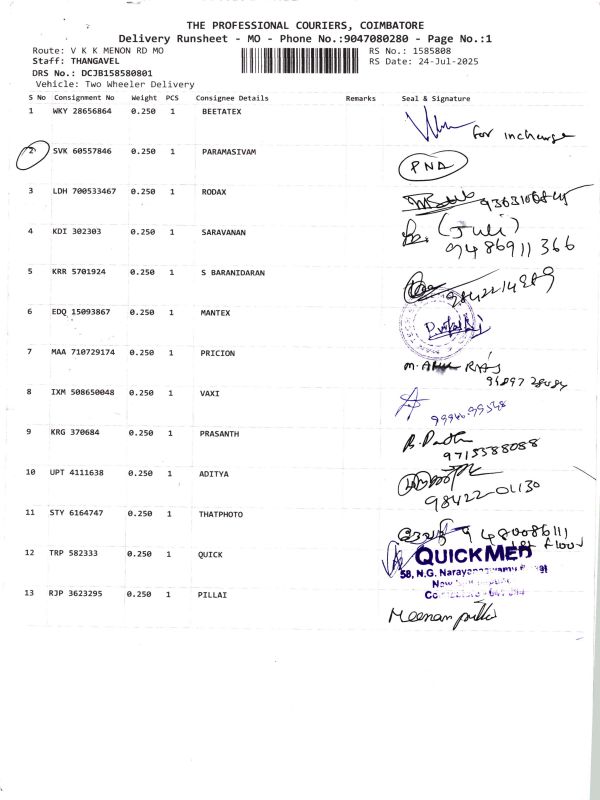 THE PROFESSIONAL COURIERS, COIMBATORE
Delivery Runsheet - MO - Phone No.:9047080280 - Page No.:1
Route: V K K MENON RD MO
RS No.: 1585808
Staff: THANGAVEL
RS Date: 24-Jul-2025
DRS No.: DCJB158580801
Vehicle: Two Wheeler Delivery
S No Consignment No Weight PCS Consignee Details Remarks Seal & Signature
1 WKY 28656864 0.250 1 BEETATEX
for incharge
2 SVK 60557846 0.250 1 PARAMASIVAM
PNA
3 LDH 700533467 0.250 1 RODAX
4 KDI 302303 0.250 1 SARAVANAN
(Juli)
9486911366
5 KRR 5701924 0.250 1 S BARANIDARAN
6 EDQ 15093867 0.250 1 MANTEX
7 MAA 710729174 0.250 1 PRICION
8 IXM 508650048 0.250 1 VAXI
9 KRG 370684 0.250 1 PRASANTH
9715588088
10 UPT 4111638 0.250 1 ADITYA
98422-01130
11 STY 6164747 0.250 1 THATPHOTO
12 TRP 582333 0.250 1 QUICK
QUICKMED
58, N.G. Narayanaswamy
13 RJP 3623295 0.250 1 PILLAI
Meenan pillai